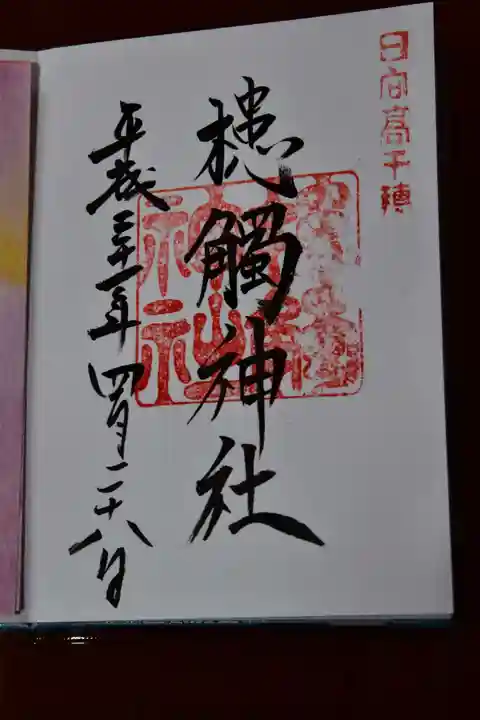 日向高千穂
槵觸神社
平成三十一年四月二十八日